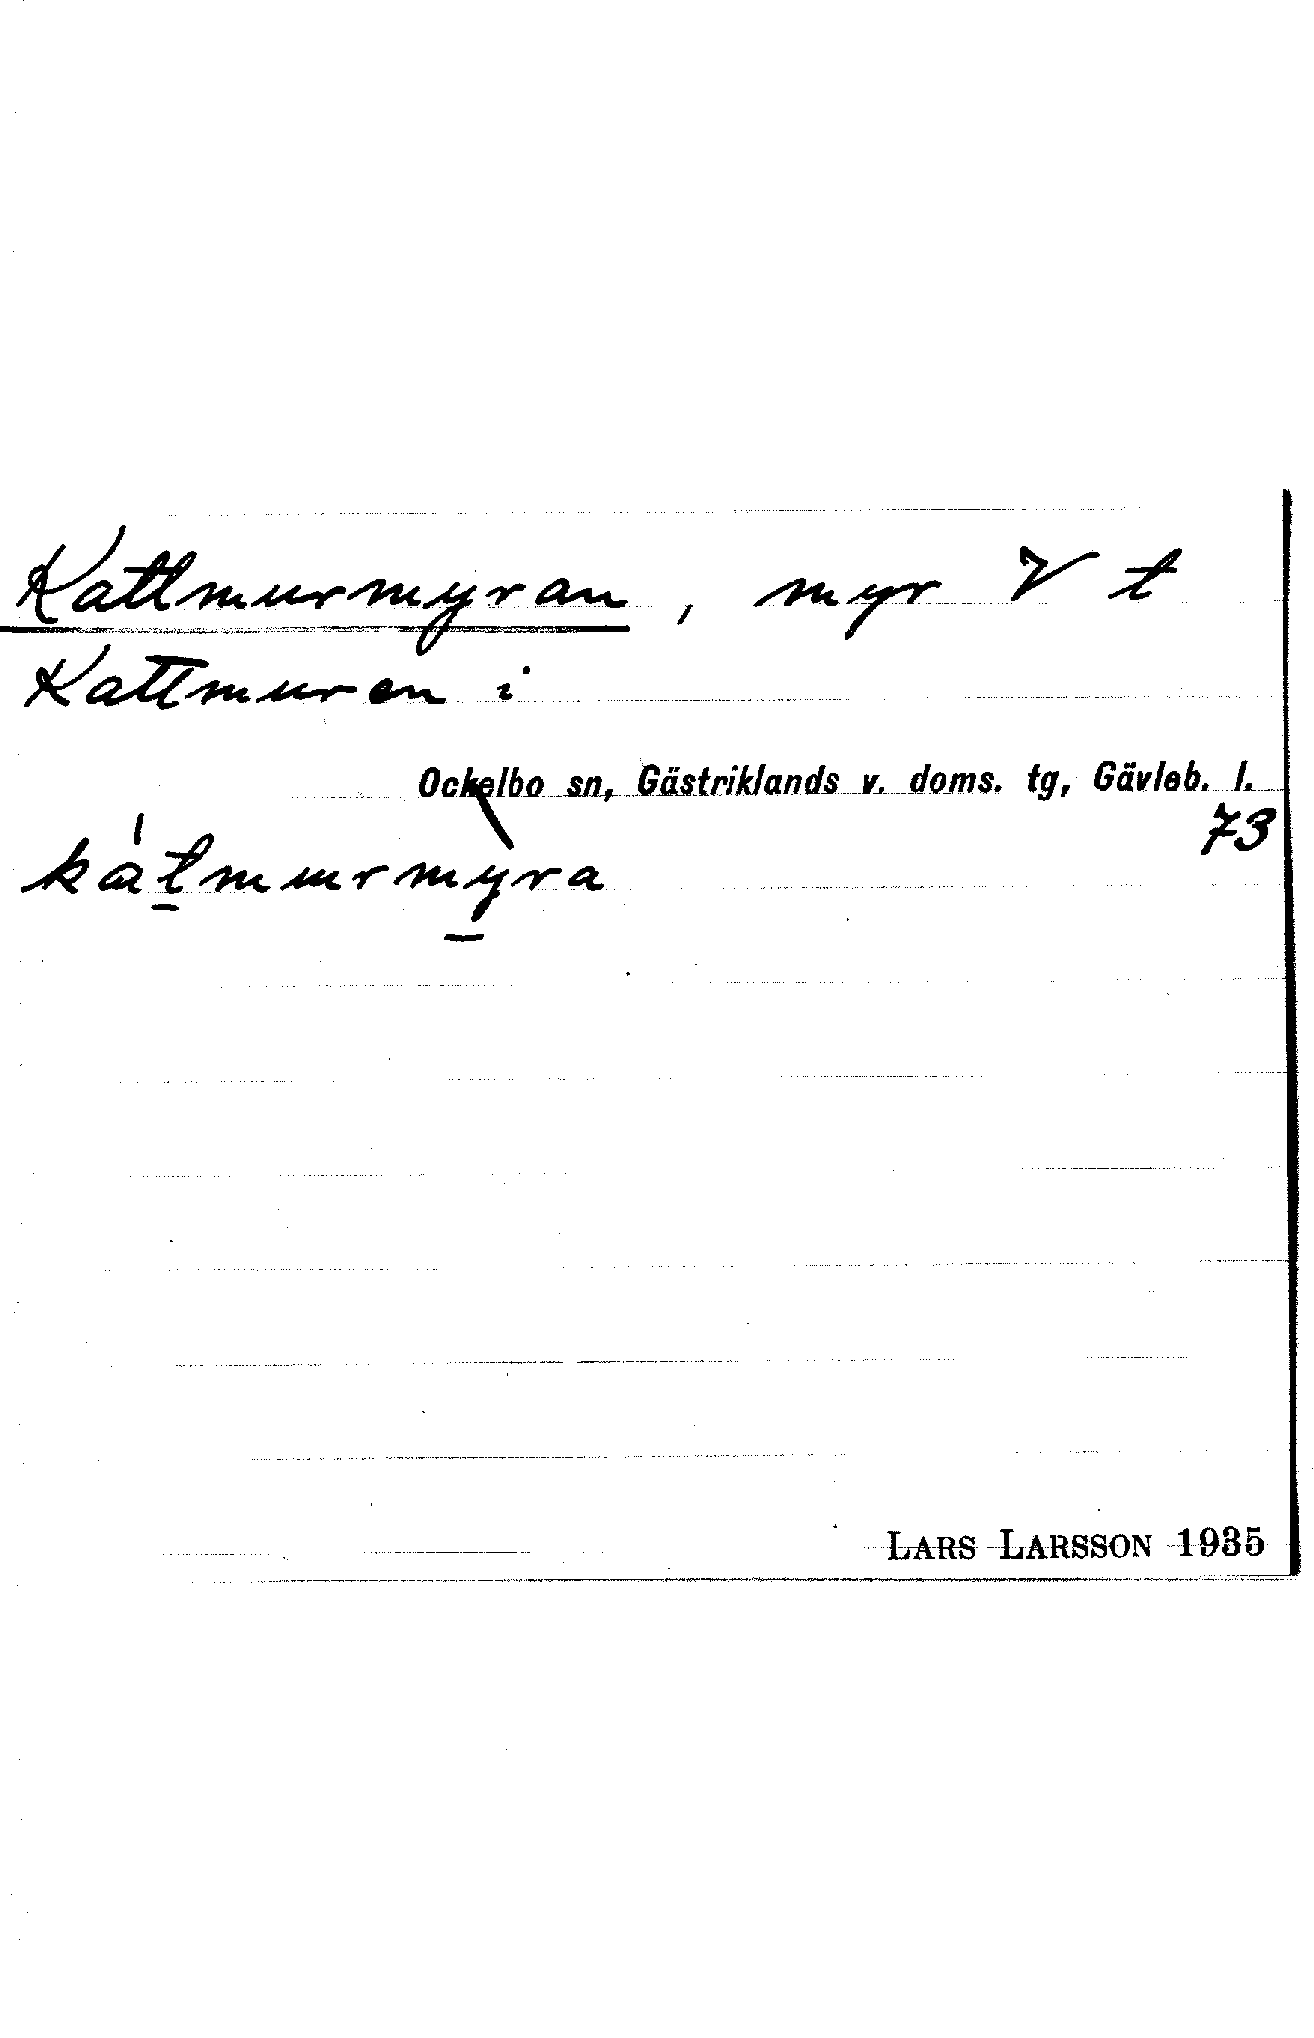 Kattmurmyran, myr V t
Kattmuren i
Ockelbo sn, Gästriklands v. doms. tg, Gävleb. l.
73
kát̲murmỳ̲ra
LARS LARSSON 1935